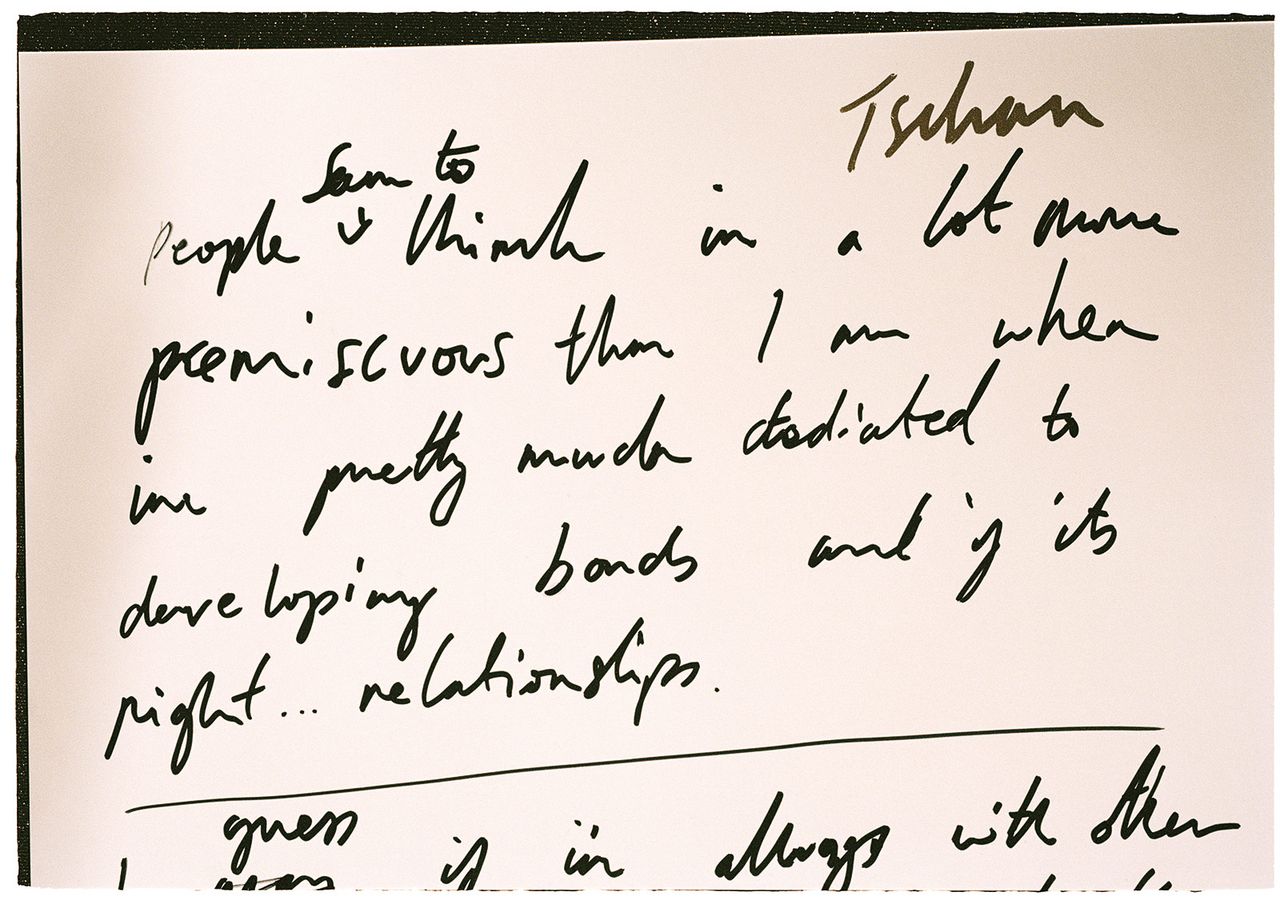 Tschan
Seem to
People ↓ think im a lot more
premiscuous than I am when
im pretty much dedicated to
developing bonds and if its
right... relationships.
guess
I if im always with other